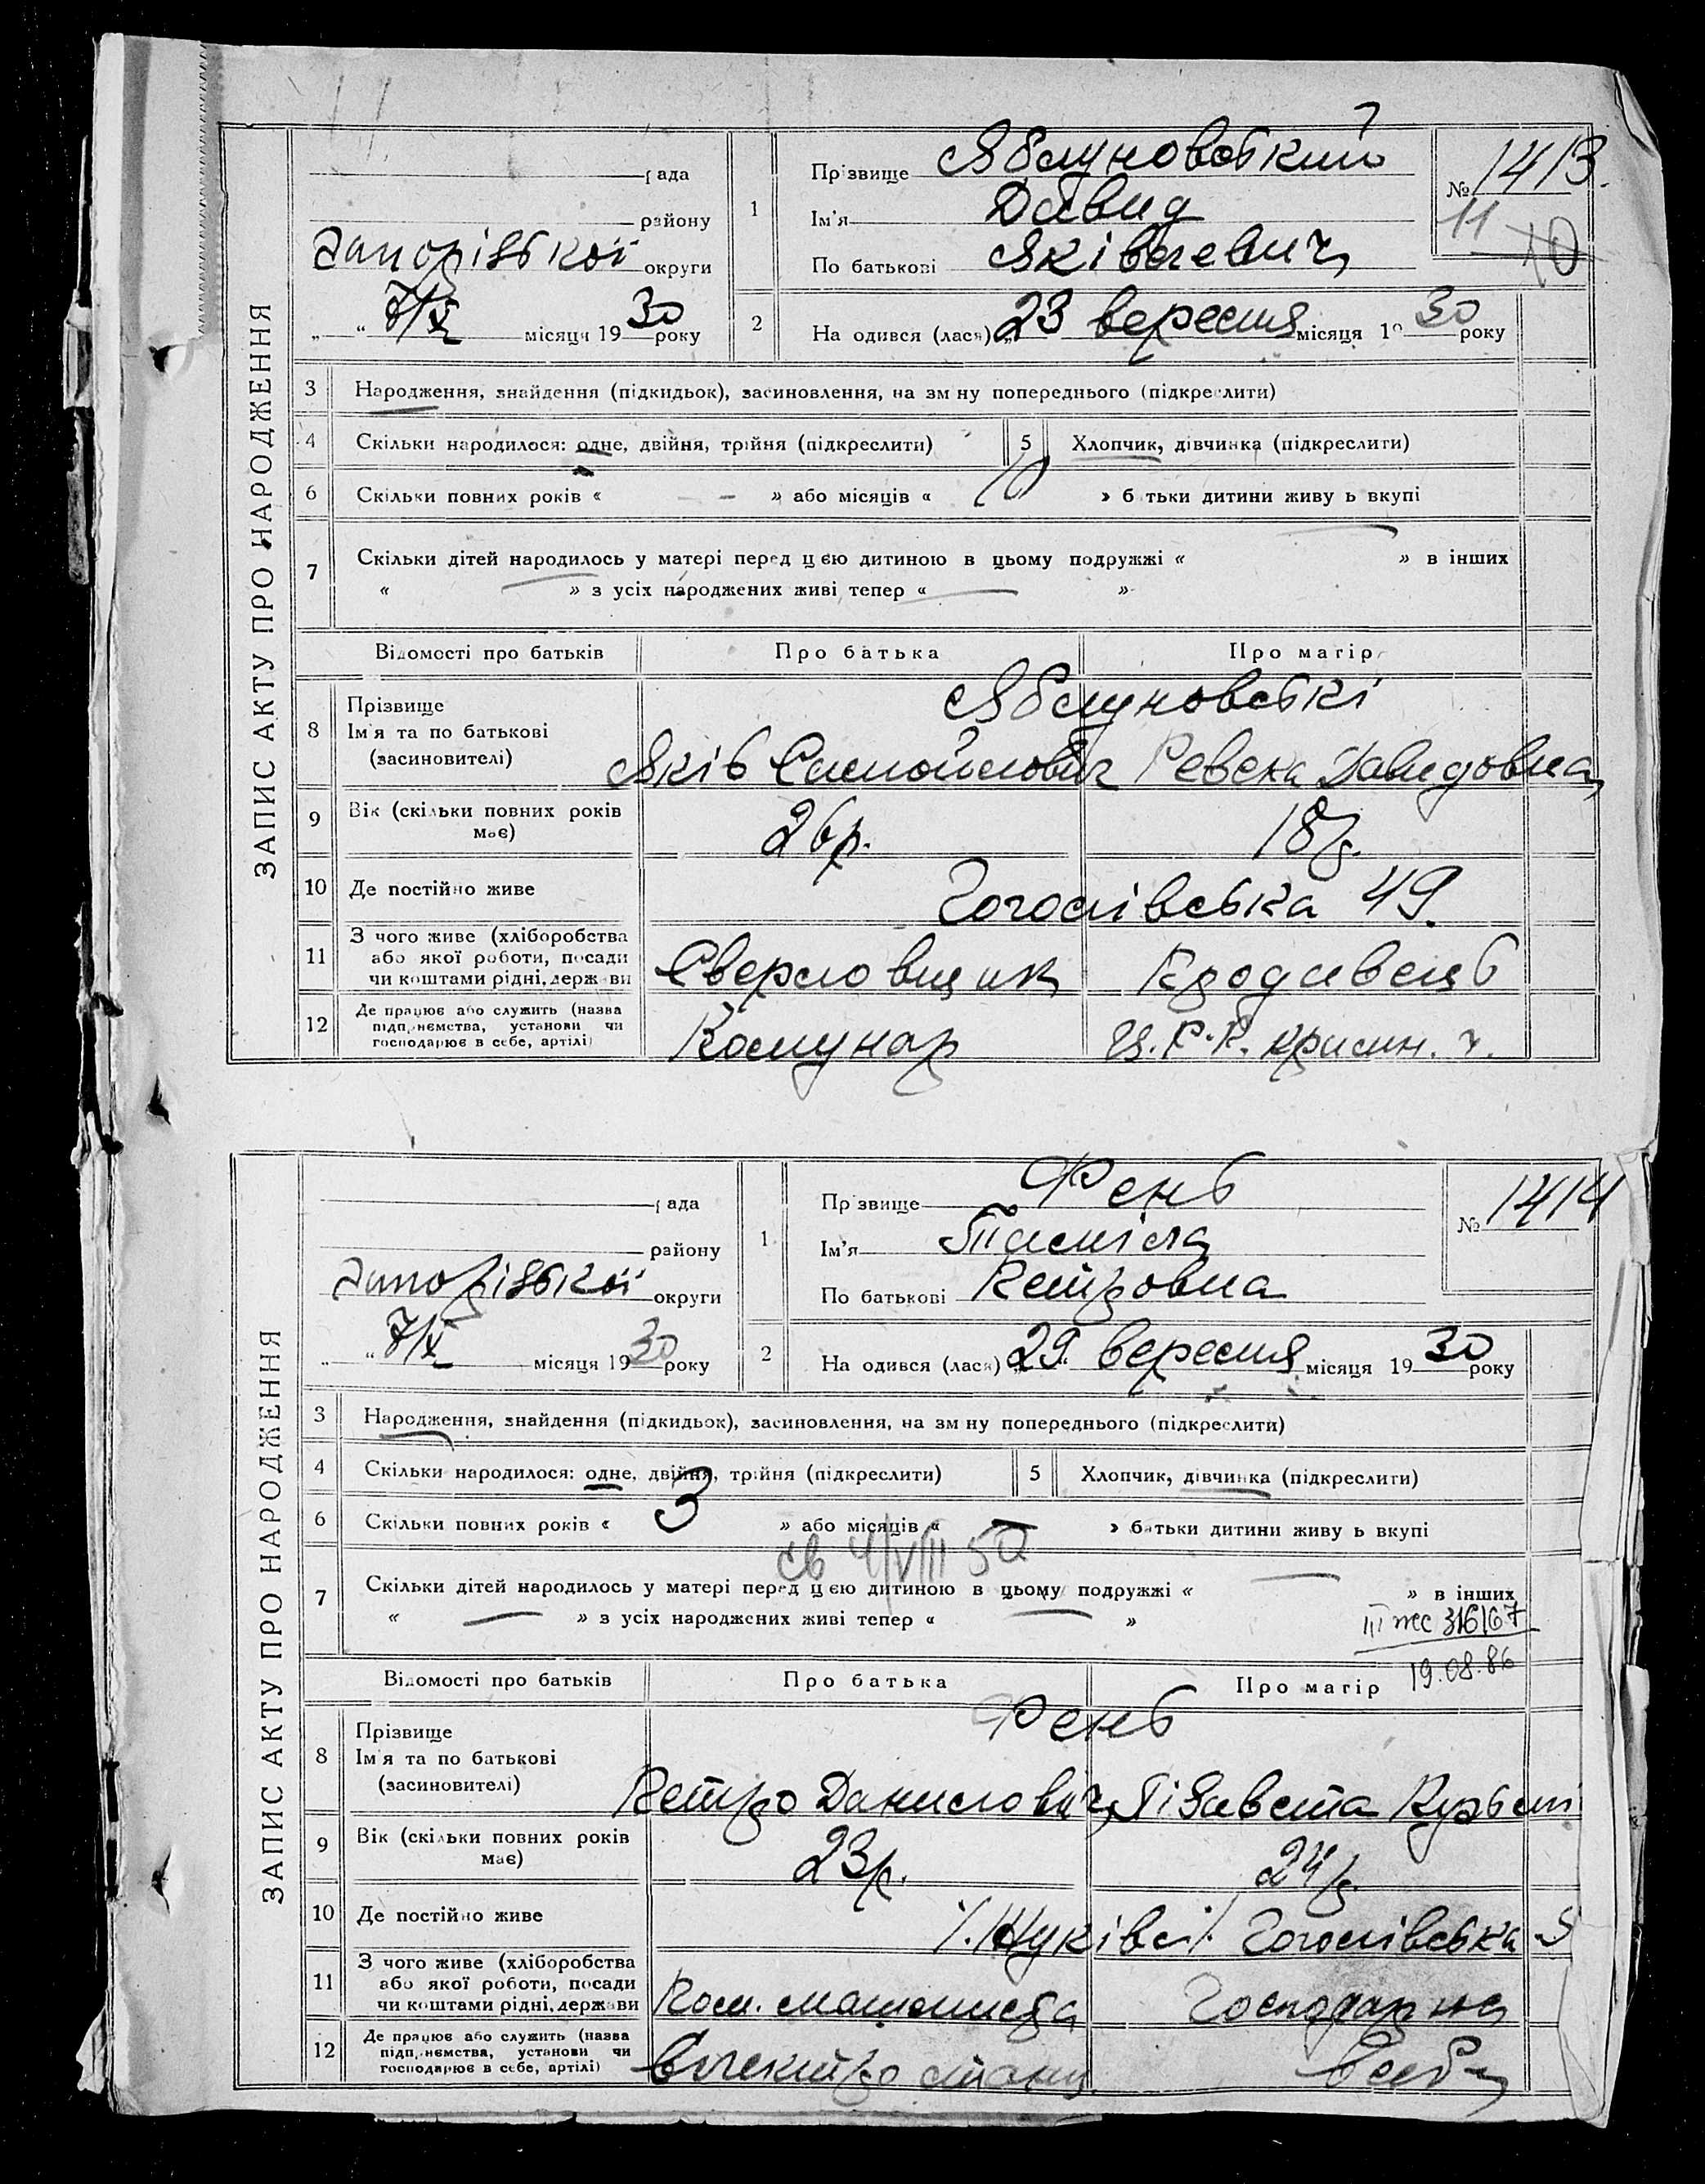 ЗАПИС АКТУ ПРО НАРОДЖЕННЯ
рада
району
Запорізької округи
„ “ 7/X місяця 1930 року
1
Прізвище Яблуновський
Ім'я Давид
По батькові Яківлевич
№ 1413.
11
10
2
Народився (лася) „23 вересня місяця 1930 року
3 Народження, знайдення (підкидьок), засиновлення, на зміну попереднього (підкреслити)
4 Скільки народилося: одне, двійня, трійня (підкреслити) 5 Хлопчик, дівчинка (підкреслити)
6 Скільки повних років « — » або місяців « 10 » батьки дитини живуть вкупі
7 Скільки дітей народилось у матері перед цією дитиною в цьому подружжі « — » в інших
« — » з усіх народжених живі тепер « — »
Відомості про батьків Про батька Про матір
8 Прізвище
Ім'я та по батькові
(засиновителі)
Яблуновські
Яків Самойлович Ревека Давидовна
9 Вік (скільки повних років має) 26р. 18р.
10 Де постійно живе Гоголівська 49.
11 З чого живе (хліборобства
або якої роботи, посади
чи коштами рідні, держави
Сверловщик Продавець
12 Де працює або служить (назва
підприємства, установи чи
господарює в себе, артілі)
Комунар Ц.Р.К. крамн. ч.
ЗАПИС АКТУ ПРО НАРОДЖЕННЯ
рада
району
Запорізької округи
„ “ 7/X місяця 1930 року
1
Прізвище Фень
Ім'я Таміла
По батькові Петровна
№ 1414
2
Народився (лася) „29. вересня місяця 1930 року
3 Народження, знайдення (підкидьок), засиновлення, на зміну попереднього (підкреслити)
4 Скільки народилося: одне, двійня, трійня (підкреслити) 5 Хлопчик, дівчинка (підкреслити)
6 Скільки повних років « 3 » або місяців « — » батьки дитини живуть вкупі
св 4/VIII 50
7 Скільки дітей народилось у матері перед цією дитиною в цьому подружжі « — » в інших
« — » з усіх народжених живі тепер « — »
III ЖС 316167
19.08.86
Відомості про батьків Про батька Про матір
8 Прізвище
Ім'я та по батькові
(засиновителі)
Фень
Петро Данилович Лізавета Кузьм
9 Вік (скільки повних років має) 23р. 24р.
10 Де постійно живе Гоголівська
11 З чого живе (хліборобства
або якої роботи, посади
чи коштами рідні, держави
Пом. машиніста Господарка
12 Де працює або служить (назва
підприємства, установи чи
господарює в себе, артілі)
Електро станц. в себе